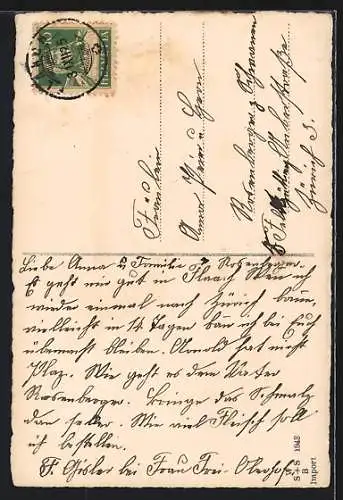 Fräulein
Anna
Rosenberger
Feld
Zürich 3.
Liebe Anna u Familie Rosenberger
Es geht mir gut in Flaach Wen ich
wieder einmal nach Zürich kam,
vielleicht in 14 Tagen kan ich bei Euch
übernacht bleiben. Arnold hat nicht
Plaz. Wie geht es dem Vater
Rosenberger. Bringe das Schmalz
dan selber. Wie viel Fleisch soll
ich bestellen.
Fr. Gisler bei Frau Frei Oberhof
S+S 1942
B
Import